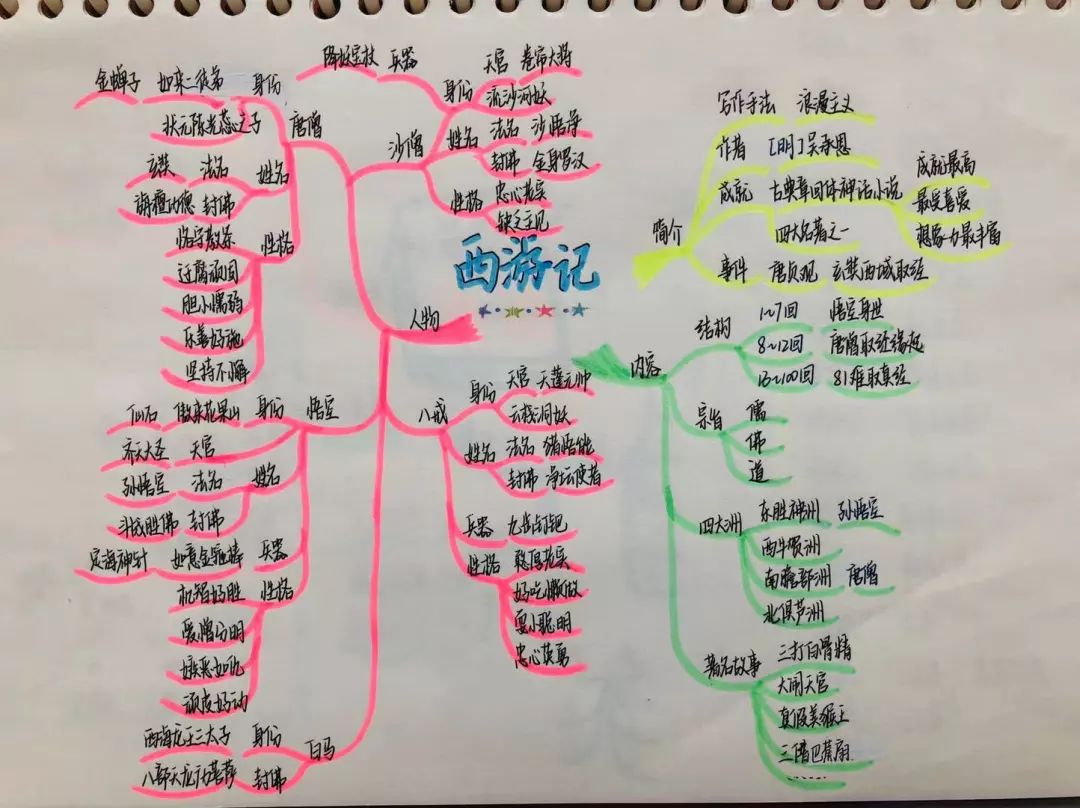 西游记
简介
写作手法 浪漫主义
作者 [明]吴承恩
成就 古典章回体神话小说
成就最高
最受喜爱
想象力最丰富
四大名著之一
事件 唐贞观 玄奘西域取经
内容
结构
1~7回 悟空身世
8~12回 唐僧取经缘起
13~100回 81难取真经
宗旨
儒
佛
道
四大洲
东胜神洲 孙悟空
西牛贺洲
南赡部洲 唐僧
北俱芦洲
著名故事
三打白骨精
大闹天宫
真假美猴王
三借芭蕉扇
……
人物
沙僧
兵器 降妖宝杖
身份
天官 卷帘大将
流沙河妖
姓名
法名 沙悟净
封佛 金身罗汉
性格
忠心老实
缺乏主见
唐僧
身份 如来二徒弟 金蝉子
状元陈光蕊之子
姓名
法名 玄奘
封佛 旃檀功德
性格
恪守教条
迂腐顽固
胆小懦弱
乐善好施
坚持不懈
悟空
身份 傲来花果山 仙石
天官 齐天大圣
姓名
法名 孙悟空
封佛 斗战胜佛
兵器 如意金箍棒 定海神针
性格
机智好胜
爱憎分明
嫉恶如仇
顽皮好动
八戒
身份
天官 天蓬元帅
云栈洞妖
姓名
法名 猪悟能
封佛 净坛使者
兵器 九齿钉耙
性格
憨厚老实
好吃懒做
耍小聪明
忠心英勇
白马
身份 西海龙王三太子
封佛 八部天龙广力菩萨